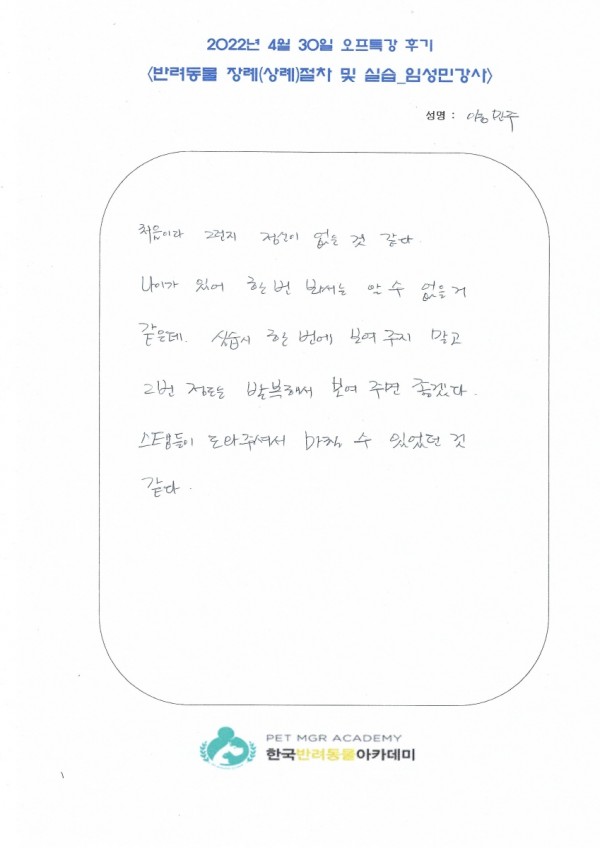 2022년 4월 30일 오프특강 후기
<반려동물 장례(상례)절차 및 실습_임성민강사>
성명 :
처음이라 그런지 정신이 없는 것 같다.
나이가 있어 한번 봐서는 알 수 없을거
같은데. 실습시 한 번에 보여 주지 말고
2번 정도는 반복해서 보여 주면 좋겠다.
스탭들이 도와주셔서 마칠 수 있었던 것
같다.
PET MGR ACADEMY
한국반려동물아카데미